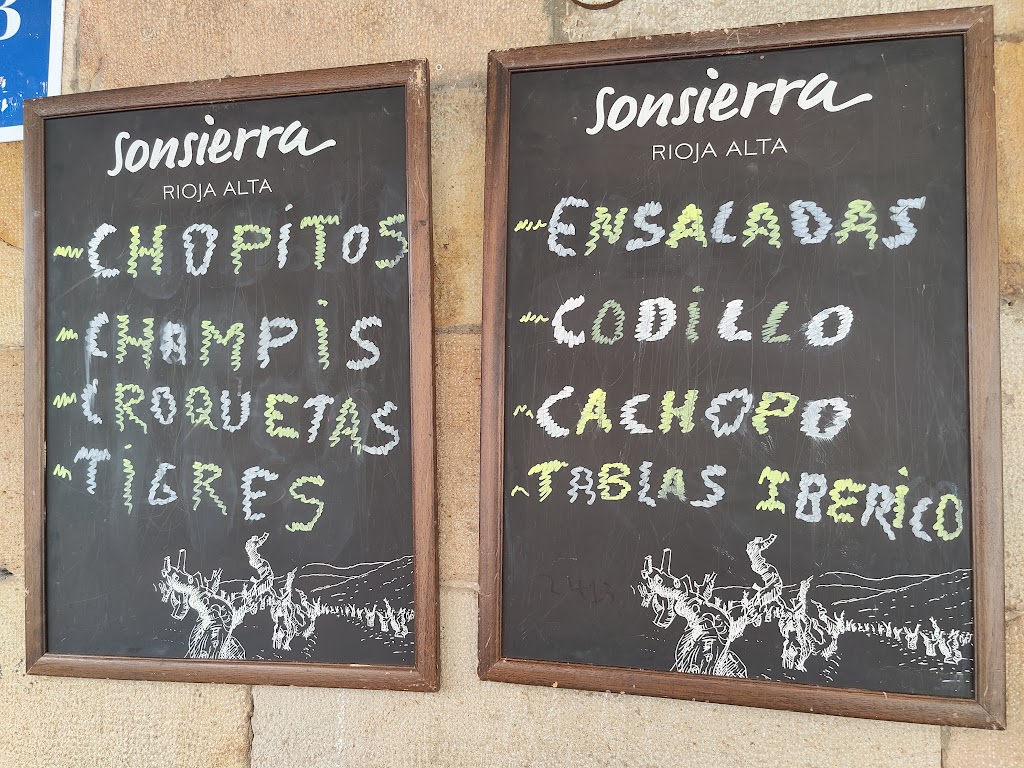 Sonsierra
RIOJA ALTA
~CHOPiTOS
~CHAMPiS
~CROQUETAS
~TiGRES
Sonsierra
RIOJA ALTA
~ENSALADAS
~CODiLLO
~CACHOPO
~TABLAS IBERiCO